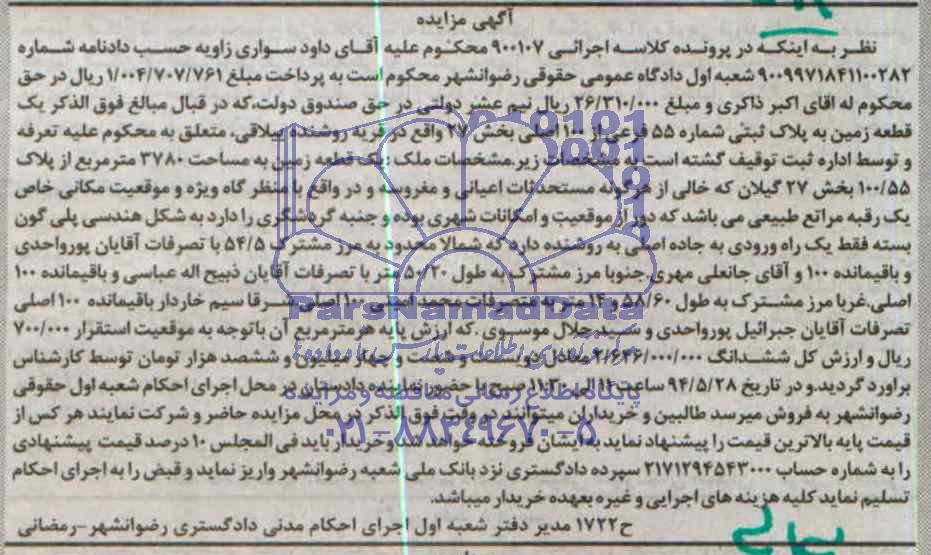 آگهی مزایده
نظر به اینکه در پرونده کلاسه اجرائی ۹۰۰۱۰۷ محکوم علیه آقای داود سواری زاویه حسب دادنامه شماره
۹۰۰۹۹۷۱۸۴۱۱۰۰۲۸۲ شعبه اول دادگاه عمومی حقوقی رضوانشهر محکوم است به پرداخت مبلغ ۱/۰۰۴/۷۰۷/۷۶۱ ریال در حق
محکوم له اقای اکبر ذاکری و مبلغ ۲۶/۳۱۰/۰۰۰ ریال نیم عشر دولتی در حق صندوق دولت،که در قبال مبالغ فوق الذکر یک
قطعه زمین به پلاک ثبتی شماره ۵۵ فرعی از ۱۰۰ اصلی بخش ۲۷ واقع در قریه روشنده ییلاقی، متعلق به محکوم علیه تعرفه
و توسط اداره ثبت توقیف گشته است به مشخصات زیر.مشخصات ملک :یک قطعه زمین به مساحت ۳۷۸۰ مترمربع از پلاک
۱۰۰/۵۵ بخش ۲۷ گیلان که خالی از هرگونه مستحدثات اعیانی و مغروسه و در واقع با منظر گاه ویژه و موقعیت مکانی خاص
یک رقبه مراتع طبیعی می باشد که دور از موقعیت و امکانات شهری بوده و جنبه گردشگری را دارد به شکل هندسی پلی گون
بسته فقط یک راه ورودی به جاده اصلی به روشنده دارد که شمالا محدود به مرز مشترک ۵۴/۵ با تصرفات آقایان پورواحدی
و باقیمانده ۱۰۰ و آقای جانعلی مهری.جنوبا مرز مشترک به طول ۵۰/۲۰ متر با تصرفات آقایان ذبیح اله عباسی و باقیمانده ۱۰۰
اصلی.غربا مرز مشترک به طول ۵۸/۶۰ و ۱۴ متر به متصرفات محمد امینی ۱۰۰ اصلی شرقا سیم خاردار باقیمانده ۱۰۰ اصلی
تصرفات آقایان جبرائیل پورواحدی و سید جلال موسوی .که ارزش پایه هرمترمربع آن باتوجه به موقعیت استقرار ۷۰۰/۰۰۰
ریال و ارزش کل ششدانگ ۲/۶۴۶/۰۰۰/۰۰۰ معادل دویست و شصت و چهار میلیون و ششصد هزار تومان توسط کارشناس
براورد گردید.و در تاریخ ۹۴/۵/۲۸ ساعت ۱۱ الی ۱۱:۳۰ صبح با حضور نماینده دادستان در محل اجرای احکام شعبه اول حقوقی
رضوانشهر به فروش میرسد طالبین و خریداران میتوانند در وقت فوق الذکر در محل مزایده حاضر و شرکت نمایند هر کس از
قیمت پایه بالاترین قیمت را پیشنهاد نماید به ایشان فروخته خواهد شد وخریدار باید فی المجلس ۱۰ درصد قیمت پیشنهادی
را به شماره حساب ۲۱۷۱۲۹۴۵۴۳۰۰۰ سپرده دادگستری نزد بانک ملی شعبه رضوانشهر واریز نماید و قبض را به اجرای احکام
تسلیم نماید کلیه هزینه های اجرایی و غیره بعهده خریدار میباشد.
ح۱۷۲۲ مدیر دفتر شعبه اول اجرای احکام مدنی دادگستری رضوانشهر-رمضانی
ParsNamadData
پایگاه اطلاع رسانی مناقصه و مزایده
۰۲۱-۸۸۳۴۹۶۷۰-۵